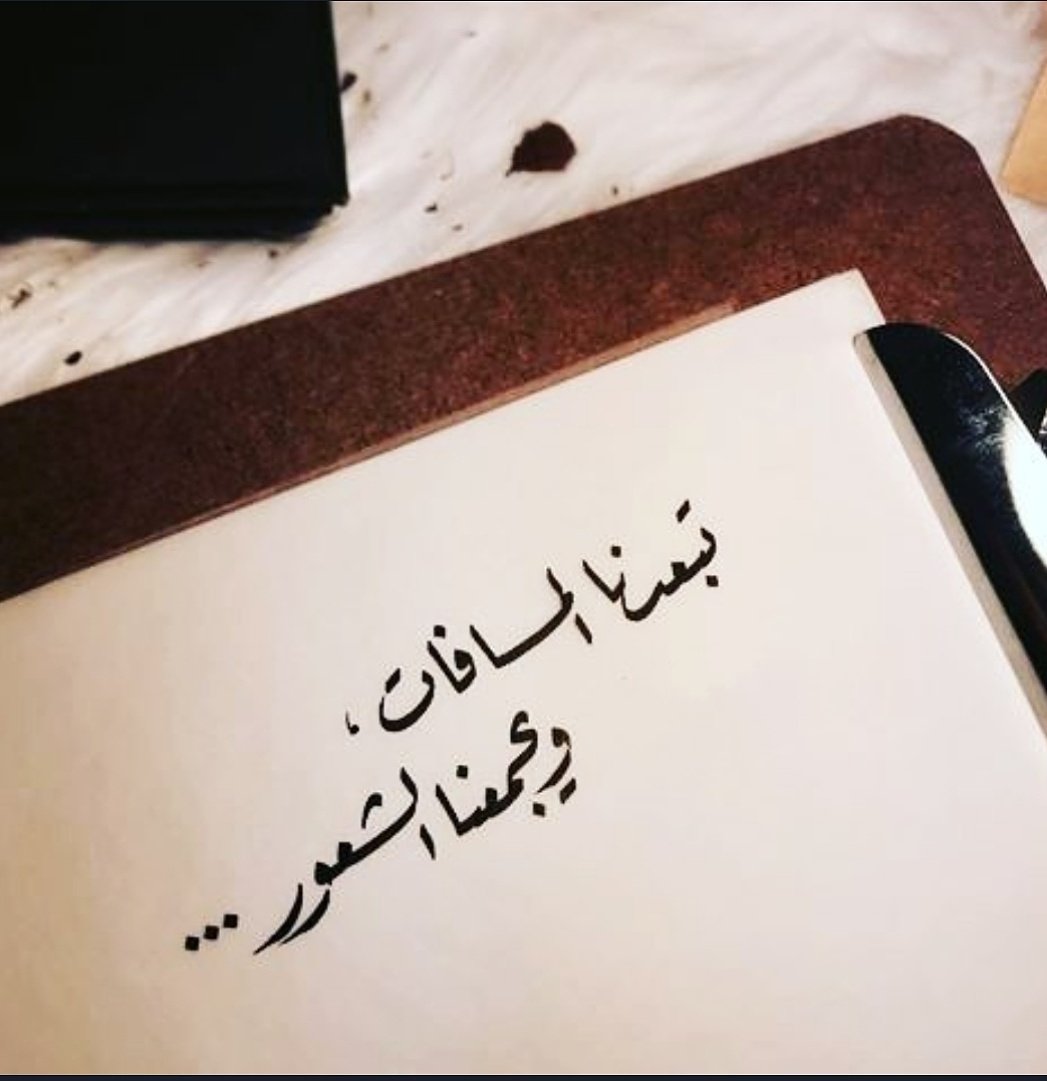 تبعدنا المسافات ،
ويجمعنا الشعور ...